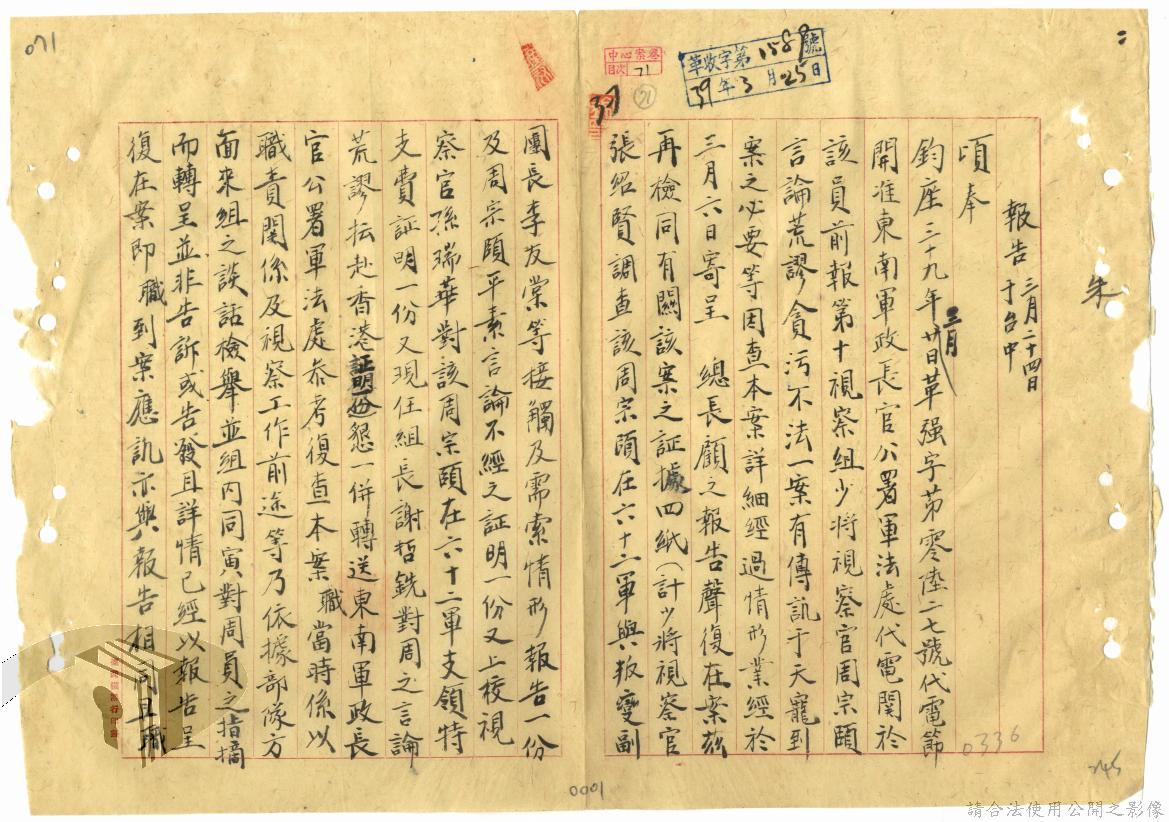 071
二
中心案卷
目次 71
71
革收字第1587號
39年3月25日
37
朱
報告 三月二十四日
于台中
頃奉
鈞座三十九年三月廿日革强字第零陸二七號代電節
開准東南軍政長官公署軍法處代電関於
該員前報第十視察組少將視察官周宗頤
言論荒謬貪污不法一案有傳訊于天寵到
案之必要等因查本案詳細經過情形業經於
三月六日寄呈 總長顧之報告聲復在案茲
再檢同有關該案之証據四紙(計少將視察官
張紹賢調查該周宗頤在六十二軍與叛變副
團長李友棠等接觸及需索情形報告一份
及周宗頤平素言論不經之証明一份又上校視
察官孫瑞華對該周宗頤在六十二軍支領特
支費証明一份又現任組長謝哲銑對周之言論
荒謬抎赴香港証明一份懇一併轉送東南軍政長
官公署軍法處叅考復查本案職當時係以
職責関係及視察工作前途等乃依據部隊方
面來組之談話檢舉並組内同寅對周員之指摘
而轉呈並非告訴或告發且詳情已經以報告呈
復在案即職到案應訊亦與報告相同且職
0336
245
0001
請合法使用公開之影像